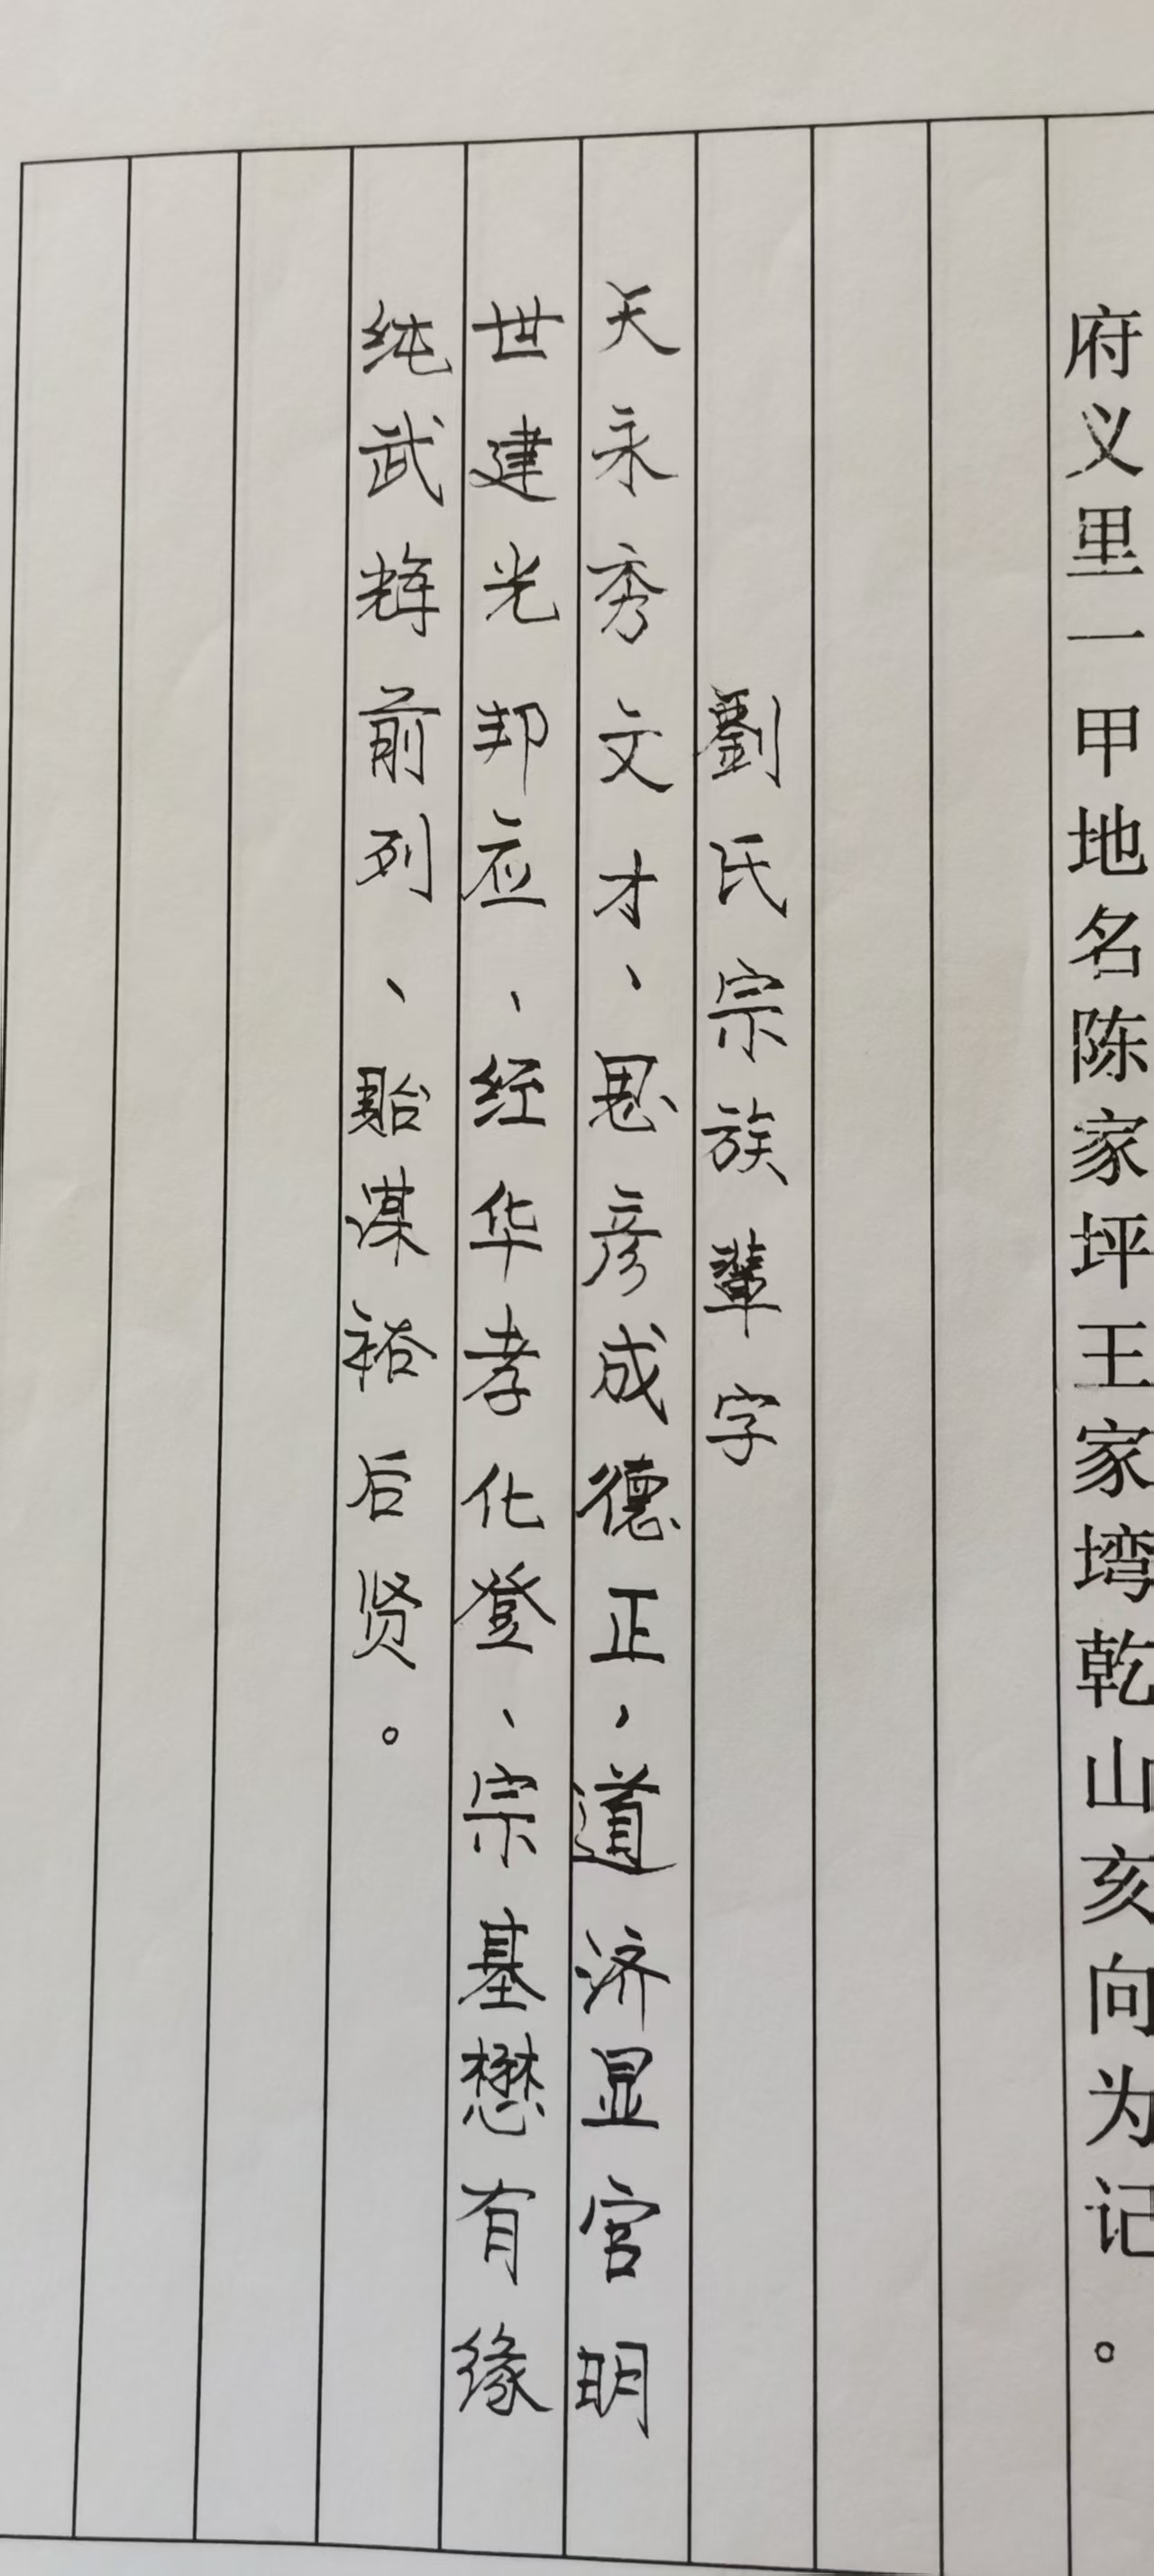 府义里一甲地名陈家坪王家塆乾山亥向为记。
劉氏宗族輩字
天永秀文才，思彦成德正，道济显宫明
世建光邦应、经华孝化登、宗基懋有缘
纯武辉前列、贻谋裕后贤。